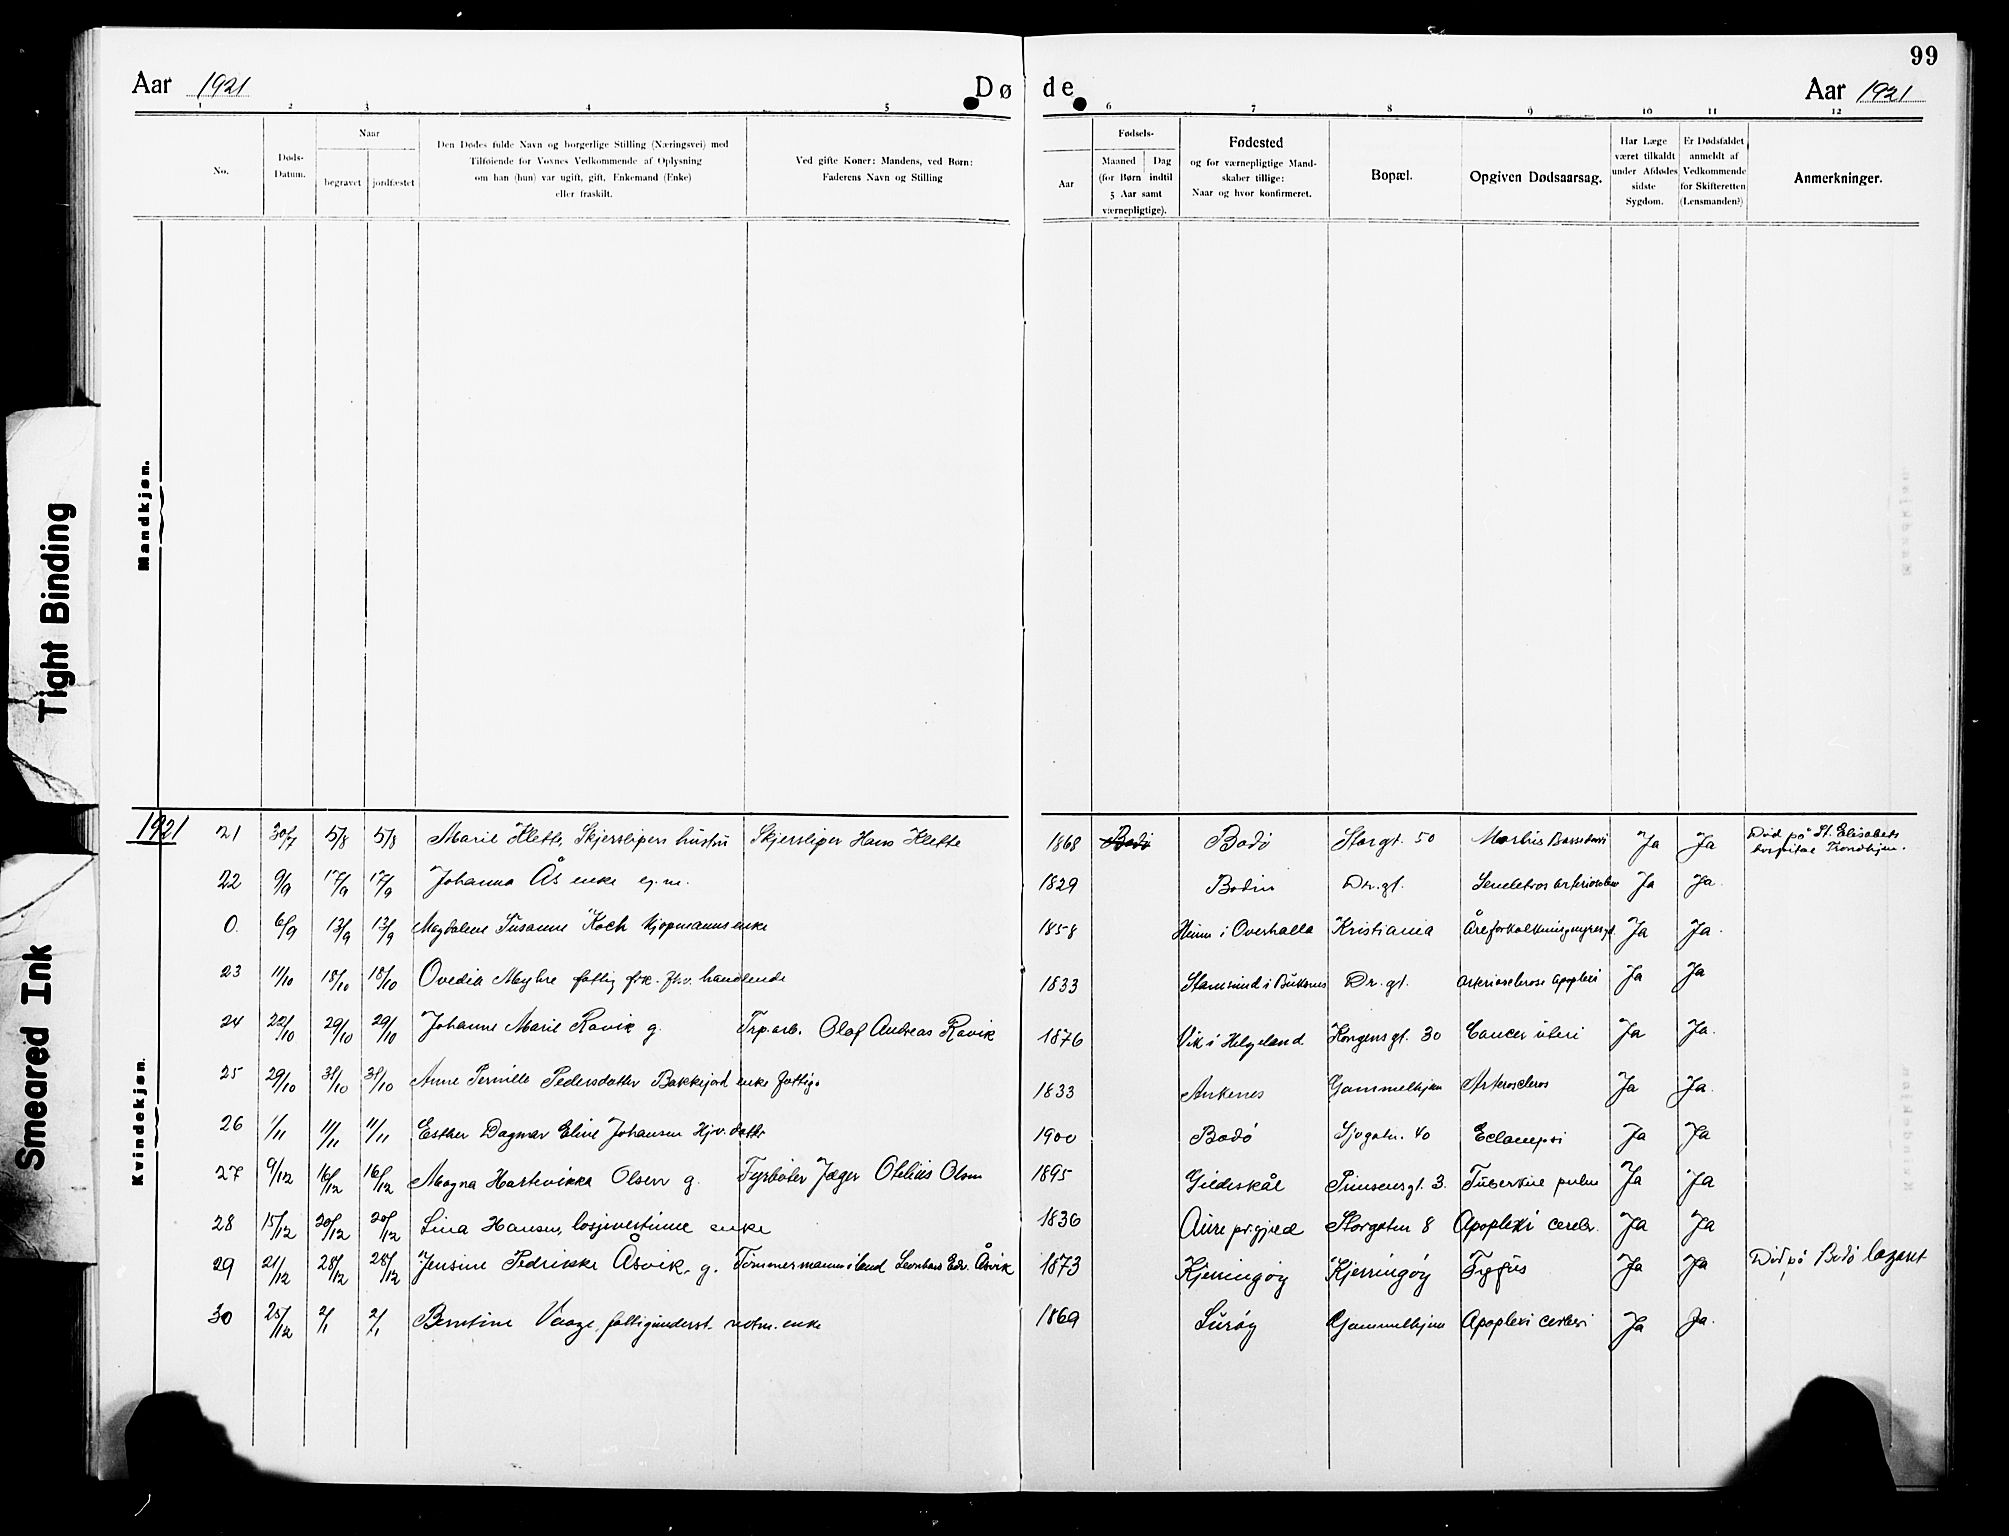 99
Aar 1921 Døde Aar 1921
1 2 3 4 5 6 7 8 9 10 11 12
No.
Døds-
Datum.
Naar
begravet jordfæstet
Den Dødes fulde Navn og borgerlige Stilling (Næringsvei) med
Tilføiende for Voxnes Vedkommende af Oplysning
om han (hun) var ugift, gift, Enkemand (Enke)
eller fraskilt.
Ved gifte Koner: Mandens, ved Børn:
Faderens Navn og Stilling
Fødsels-
Aar
Maaned Dag
(for Børn indtil
5 Aar samt
værnepligtige).
Fødested
og for værnepligtige Mand-
skaber tillige:
Naar og hvor konfirmeret.
Bopæl.
Opgiven Dødsaarsag.
Har Læge
været tilkaldt
under Afdødes
sidste
Sygdom.
Er Dødsfaldet
anmeldt af
Vedkommende
for Skifteretten
(Lensmanden?)
Anmerkninger.
Mandkjøn.
Tight Binding
Smeared Ink
Kvindekjøn.
1921
21 30/7 5/8 5/8 Marie Klette, Skjersslipers hustru Skjersliper Hans Klette 1868 Bodø Bodø Storgt. 50 Morbus Ja Ja Død på St. Elisabets
hospital Trondhjem.
22 9/9 17/9 17/9 Johanna Ås enke eg.m. 1829 Bodin Dr.gt. Ja Ja.
0. 6/9 13/9 13/9 Magdalene Susanne Koch kjøpmanns enke 1858 i Overhalla Kristiania Ja Ja.
23 11/10 18/10 18/10 Ovedia Myhre fattig frk. fhv. handlende 1833 Stamsund i Buksnes Dr.gt. arteriosclerose apoplexi Ja Ja
24 22/10 29/10 29/10 Johanne Marie Ravik g. Trp.arb. Olaf Andreas Ravik 1876 Vik i Helgeland Kongensgt. 30 Cancer uteri Ja Ja.
25 29/10 31/10 31/10 Anne Pernille Pedersdatter Bakkejord enke fattig. 1833 Ankenes Gammelhjem Arteroscleros Ja Ja.
26 1/11 11/11 11/11 Esther Dagmar Eline Johansen Hjv. datter 1900 Bodø Sjøgatn. 40 Eclampsi Ja Ja
27 9/12 16/12 16/12 Magna Hartvikka Olsen g. Fyrbøter Jæger Otelius Olsen 1895 Gildeskål Prinsensgt. 3. Tuberkul pulm Ja Ja
28 15/12 20/12 20/12 Lina Hansen, losjivertinne enke 1836 Aure prgjeld Storgaten 8 Apoplexi cerebr. Ja Ja
29 21/12 28/12 28/12 Jensine Pedrikke Åsvik. g. Tømmermann i land Leonhars Edv. Åsvik 1873 Kjerringøy Kjerringøy Tyfus Ja Ja Død på Bodø lazaret
30 25/12 2/1 2/1 Berntine Vaage, fattigunderst. notm. enke 1869 Lurøy Gammelhjem Apoplexi cerebri Ja Ja.